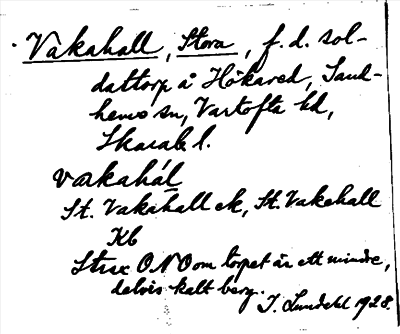 Vakahall, Stora, f.d. sol-
dattorp å Hökared, Sand-
hems sn, Vartofta hd,
Skarab l.
vakahál
St. Vakahall ek, St. Vakehall
Kb
Strax ONO om torpet är ett mindre,
delvis kalt berg.
I. Lundahl 1928.